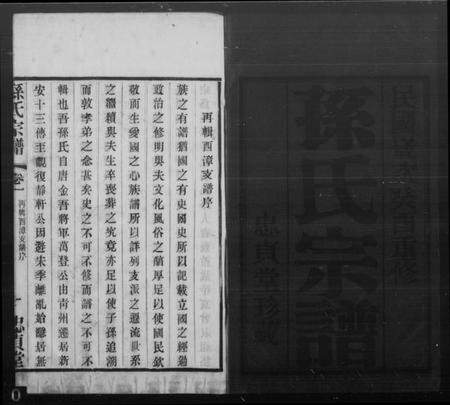 民國癸未癸酉重修
孫氏宗譜
忠貞堂珍藏
再輯西漳支譜序
族之有譜猶國之有史國史所以記載立國之經過
政治之修明與夫文化風俗之蘭厚足以使國民欽
敬而生愛國之心族譜所以詳列支派之遷流世系
之纘續與夫生卒喪葬之究竟亦足以使子孫追溯
而敦孝弟之念甚矣史之不可不修而譜之不可不
輯也吾孫氏自唐金吾將軍萬登公由青州遷居新
安十三傳至觀復靜軒公因避宋季離亂始隱居無
孫氏宗譜
卷一
再輯西漳支譜序
一
忠貞堂